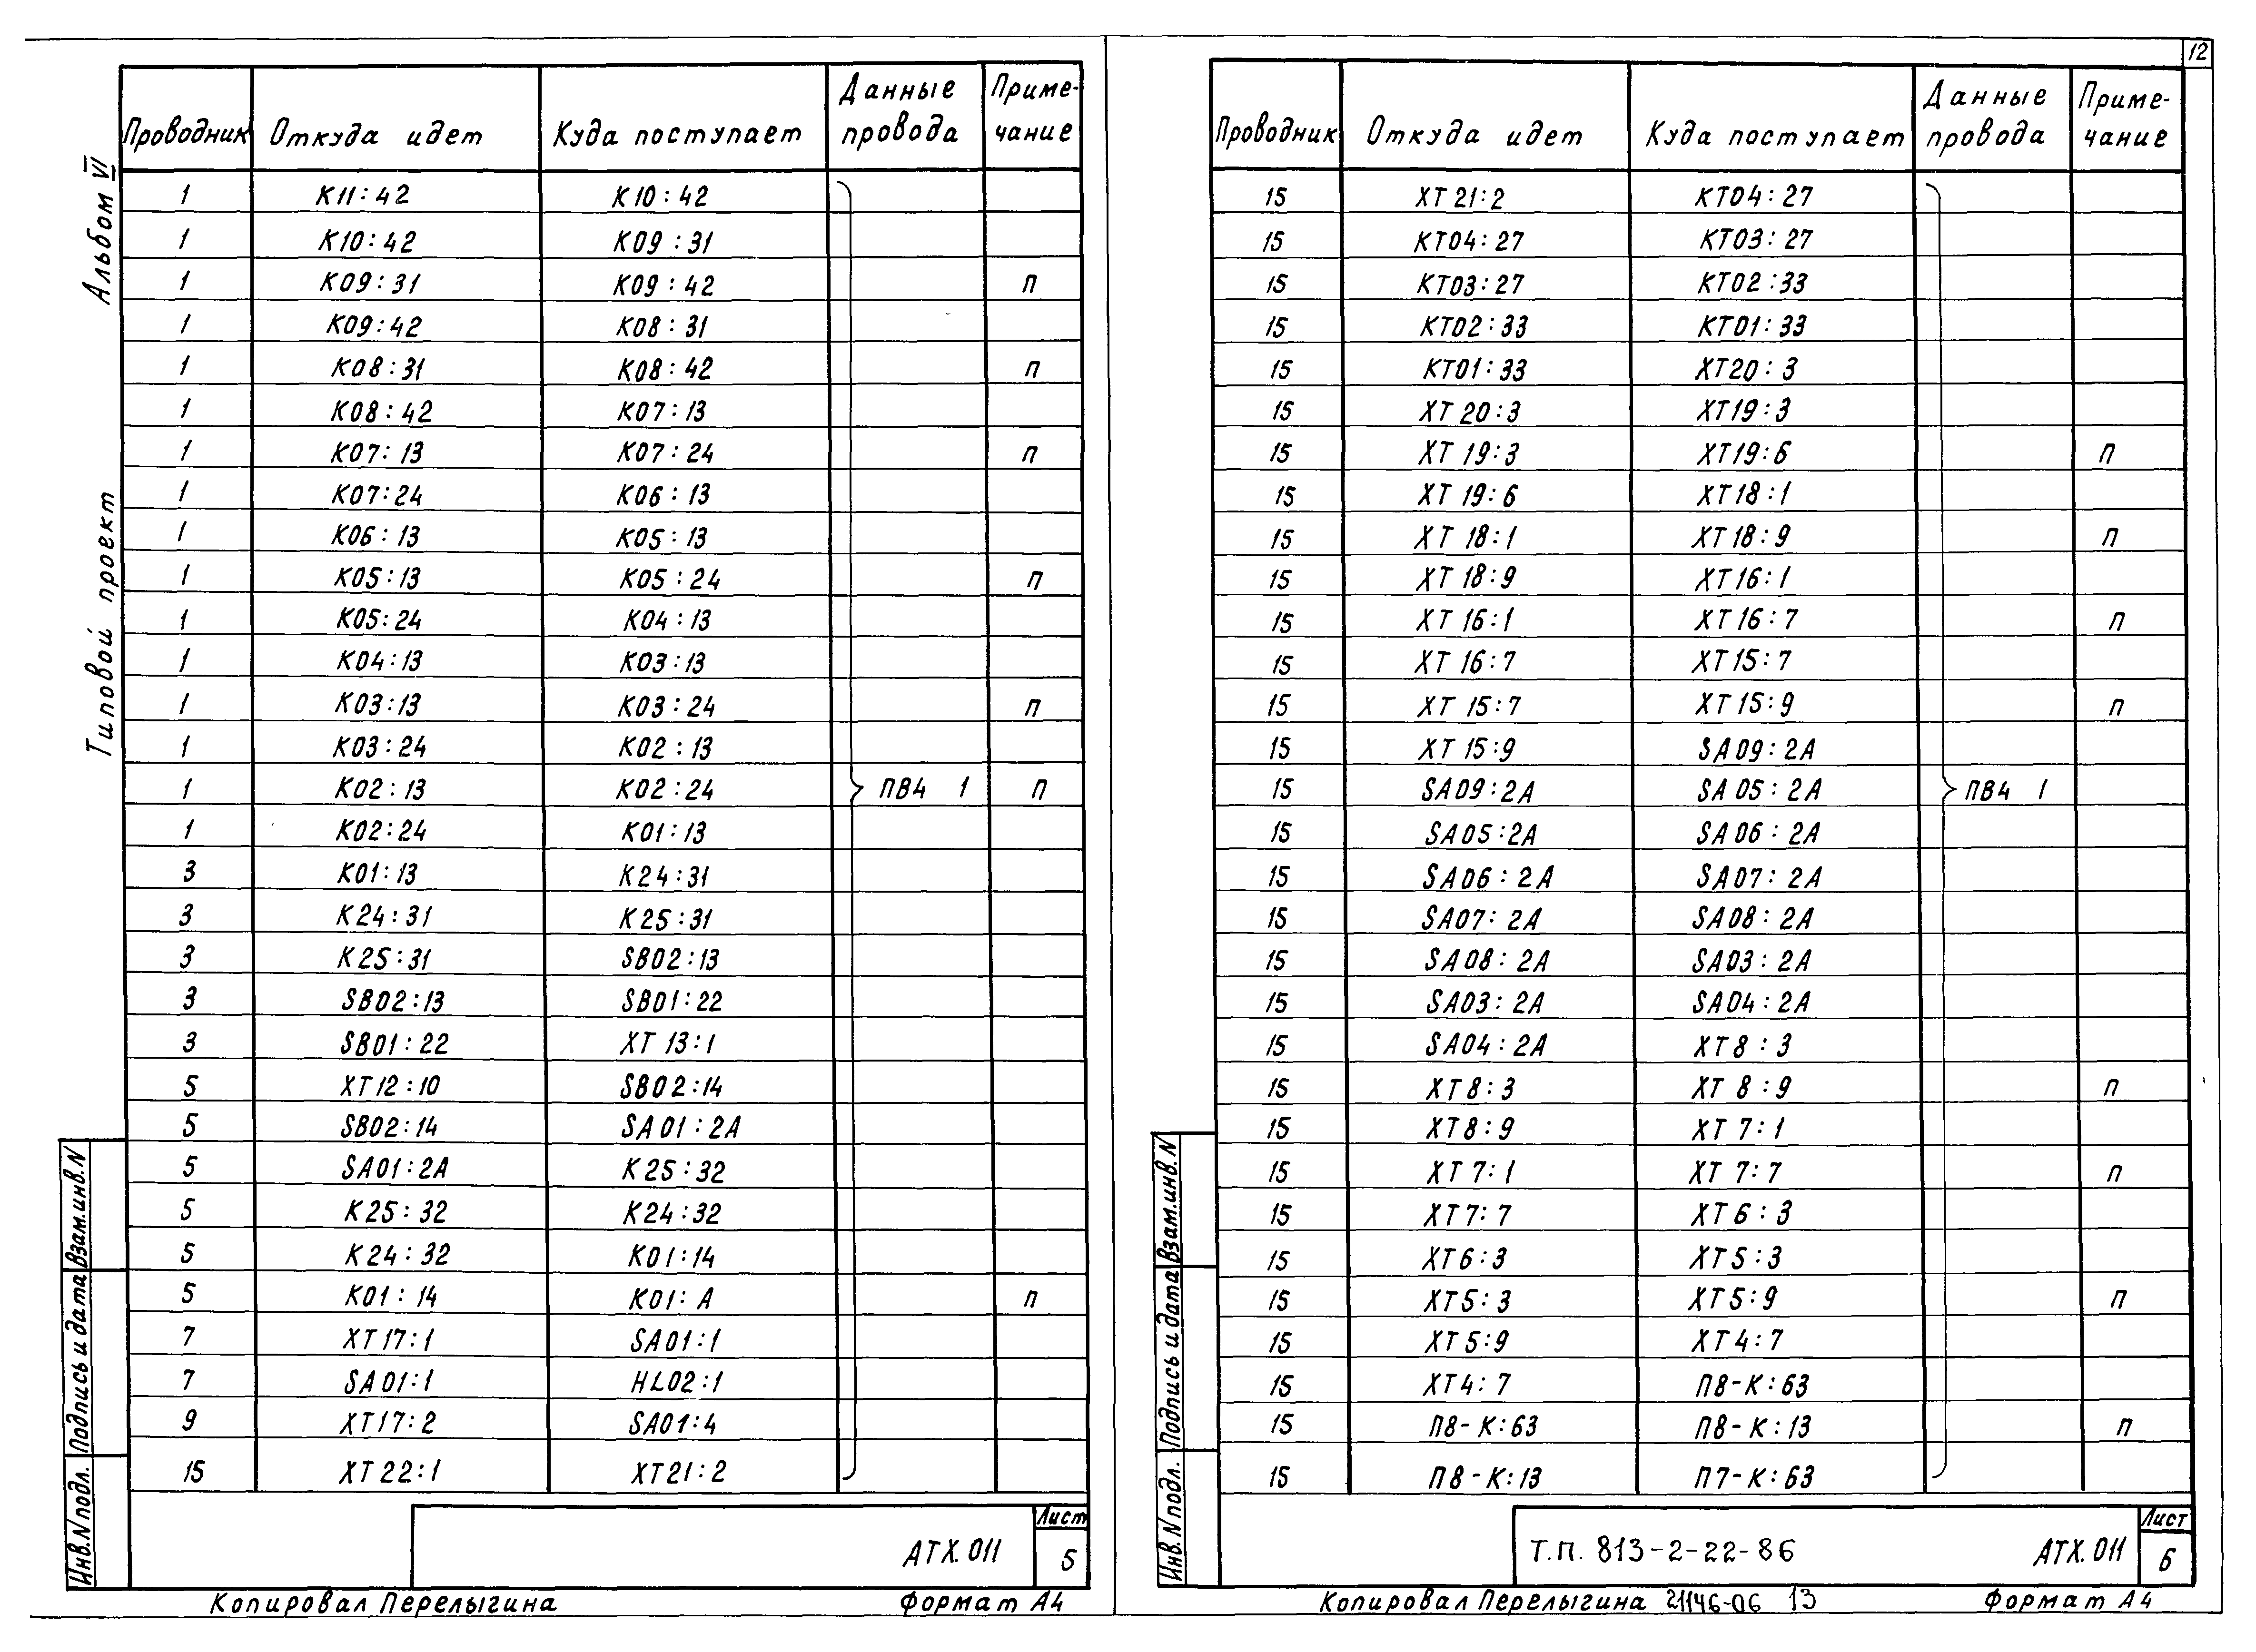 12
Альбом VI
Типовой проект
Проводник Откуда идет Куда поступает Данные провода Приме-чание
1 К11:42 К10:42
1 К10:42 К09:31
1 К09:31 К09:42 п
1 К09:42 К08:31
1 К08:31 К08:42 п
1 К08:42 К07:13
1 К07:13 К07:24 п
1 К07:24 К06:13
1 К06:13 К05:13
1 К05:13 К05:24 п
1 К05:24 К04:13
1 К04:13 К03:13
1 К03:13 К03:24 п
1 К03:24 К02:13
1 К02:13 К02:24 ПВ4 1 п
1 К02:24 К01:13
3 К01:13 К24:31
3 К24:31 К25:31
3 К25:31 SB02:13
3 SB02:13 SB01:22
3 SB01:22 XT13:1
5 XT12:10 SB02:14
5 SB02:14 SA01:2A
5 SA01:2A К25:32
5 К25:32 К24:32
5 К24:32 К01:14
5 К01:14 К01:А п
7 XT17:1 SA01:1
7 SA01:1 HL02:1
9 XT17:2 SA01:4
15 XT22:1 XT21:2
Взам.инв.N
Подпись и дата
Инв.N подл.
АТХ.011
Лист
5
Копировал Перелыгина Формат А4
Проводник Откуда идет Куда поступает Данные провода Приме-чание
15 XT21:2 KT04:27
15 KT04:27 KT03:27
15 KT03:27 KT02:33
15 KT02:33 KT01:33
15 KT01:33 XT20:3
15 XT20:3 XT19:3
15 XT19:3 XT19:6 п
15 XT19:6 XT18:1
15 XT18:1 XT18:9 п
15 XT18:9 XT16:1
15 XT16:1 XT16:7 п
15 XT16:7 XT15:7
15 XT15:7 XT15:9 п
15 XT15:9 SA09:2A
15 SA09:2A SA05:2A ПВ4 1
15 SA05:2A SA06:2A
15 SA06:2A SA07:2A
15 SA07:2A SA08:2A
15 SA08:2A SA03:2A
15 SA03:2A SA04:2A
15 SA04:2A XT8:3
15 XT8:3 XT8:9 п
15 XT8:9 XT7:1
15 XT7:1 XT7:7 п
15 XT7:7 XT6:3
15 XT6:3 XT5:3
15 XT5:3 XT5:9 п
15 XT5:9 XT4:7
15 XT4:7 П8-К:63
15 П8-К:63 П8-К:13 п
15 П8-К:13 П7-К:63
Взам.инв.N
Подпись и дата
Инв.N подл.
Т.П. 813-2-22-86 АТХ.011
Лист
6
Копировал Перелыгина 21146-06 13 Формат А4